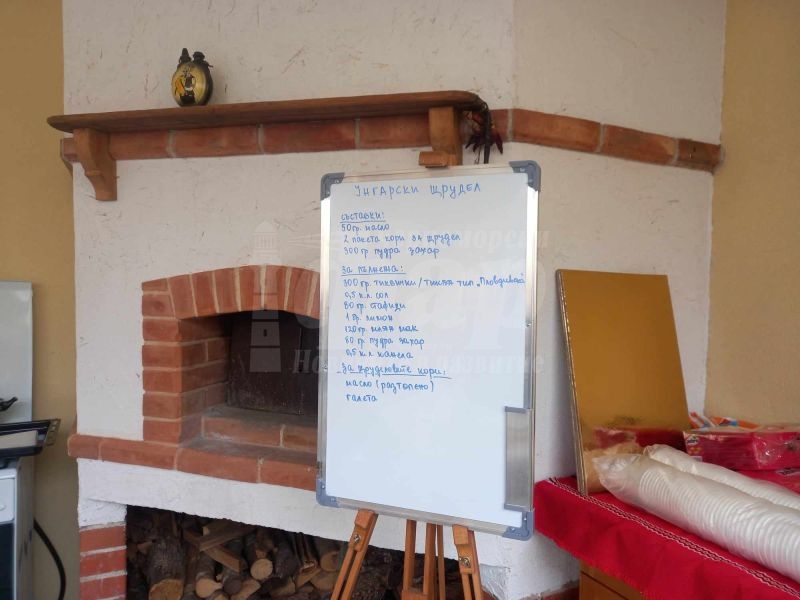 УНГАРСКИ ЩРУДЕЛ
СЪСТАВКИ:
50 гр. масло
2 пакета кори за щрудел
300 гр пудра захар
За пълнежа:
800 гр. тиквички / тиква тип „Пловдивка"
0,5 к.л. сол
80 гр. стафиди
1 бр. лимон
120 гр. млян мак
80 гр. пудра захар
0,5 к.л. канела
За щруделовите кори:
масло (разтопено)
галета